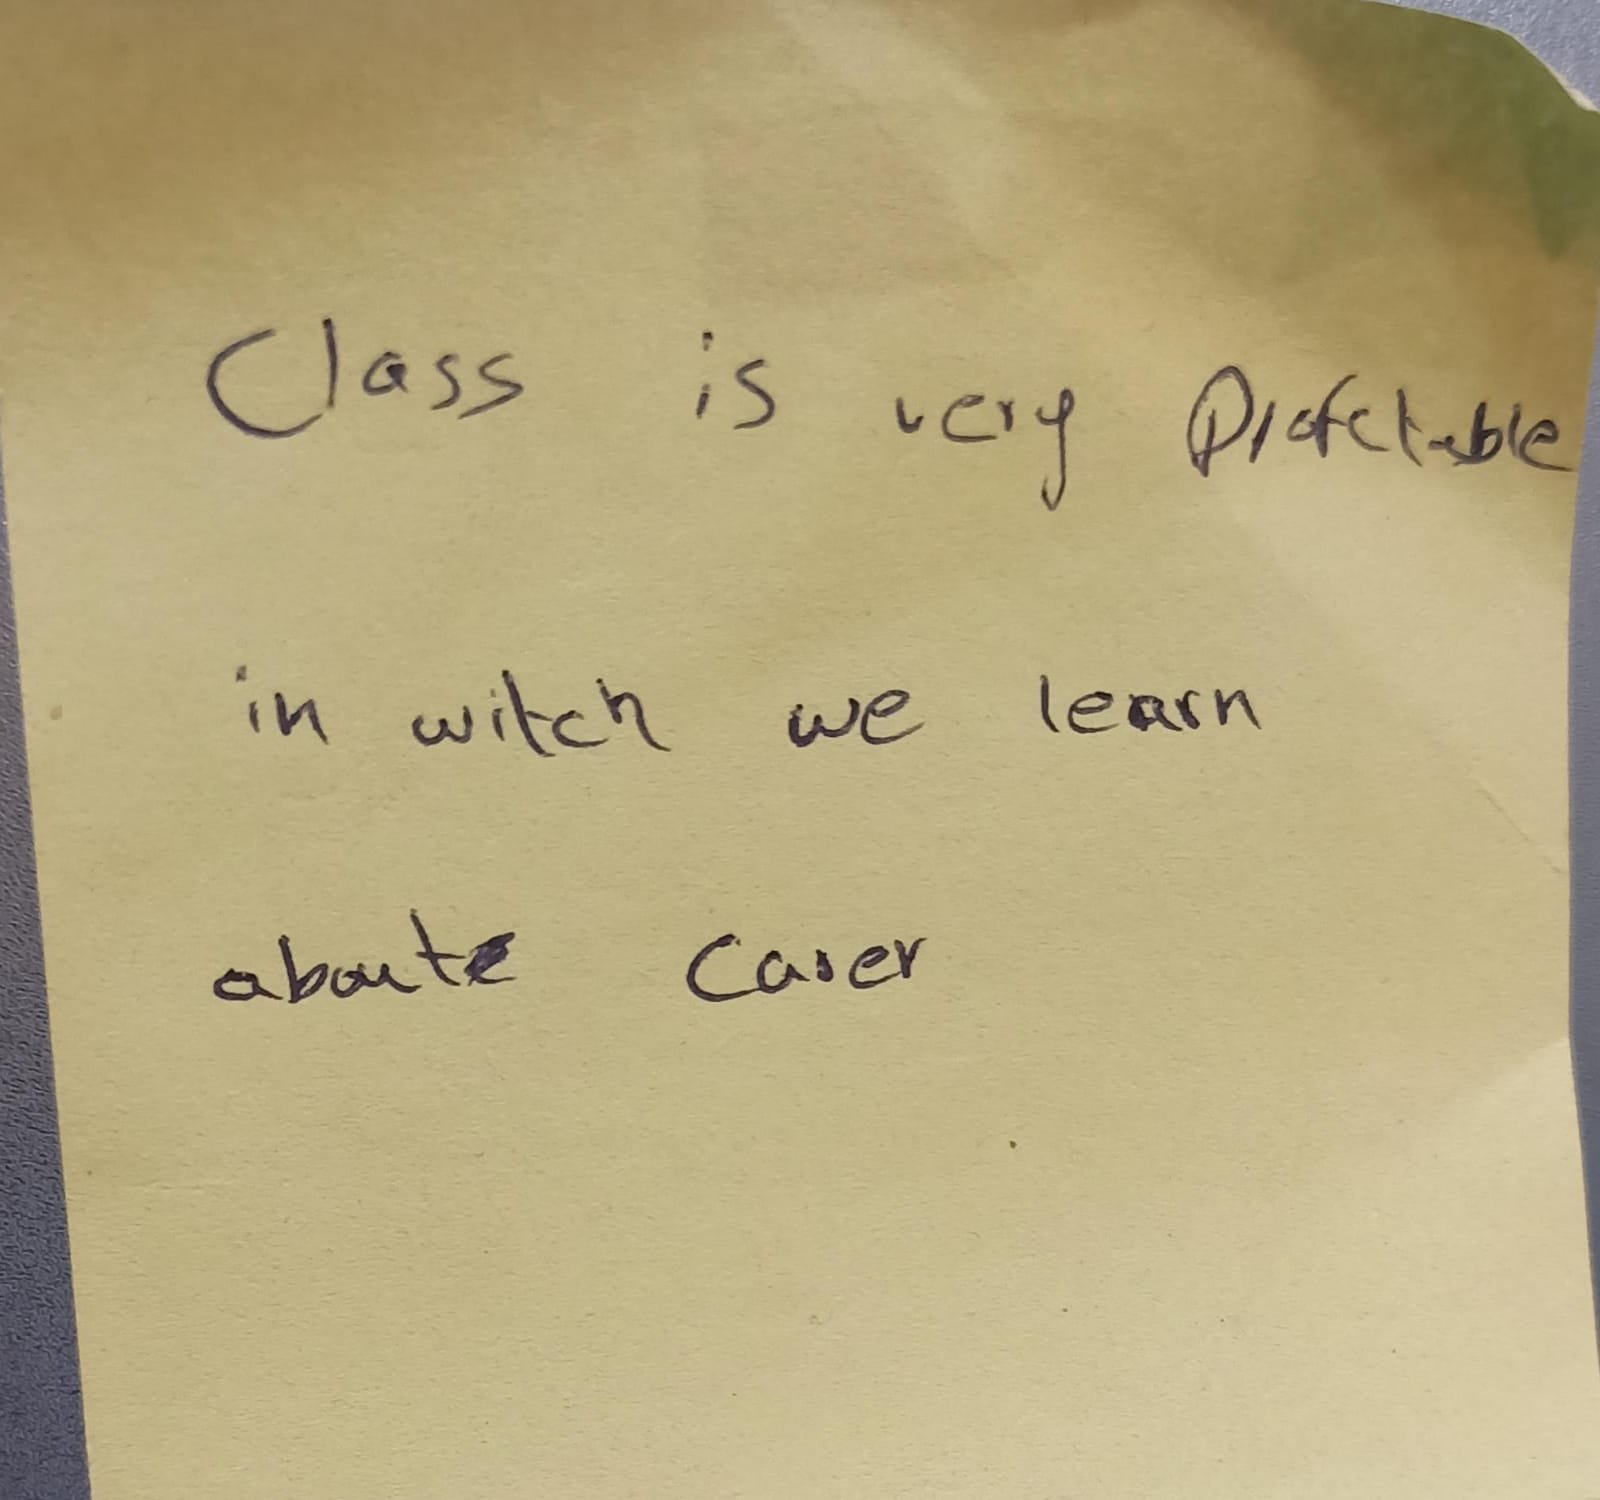 Class is very Profctable
in witch we learn
aboute Carer